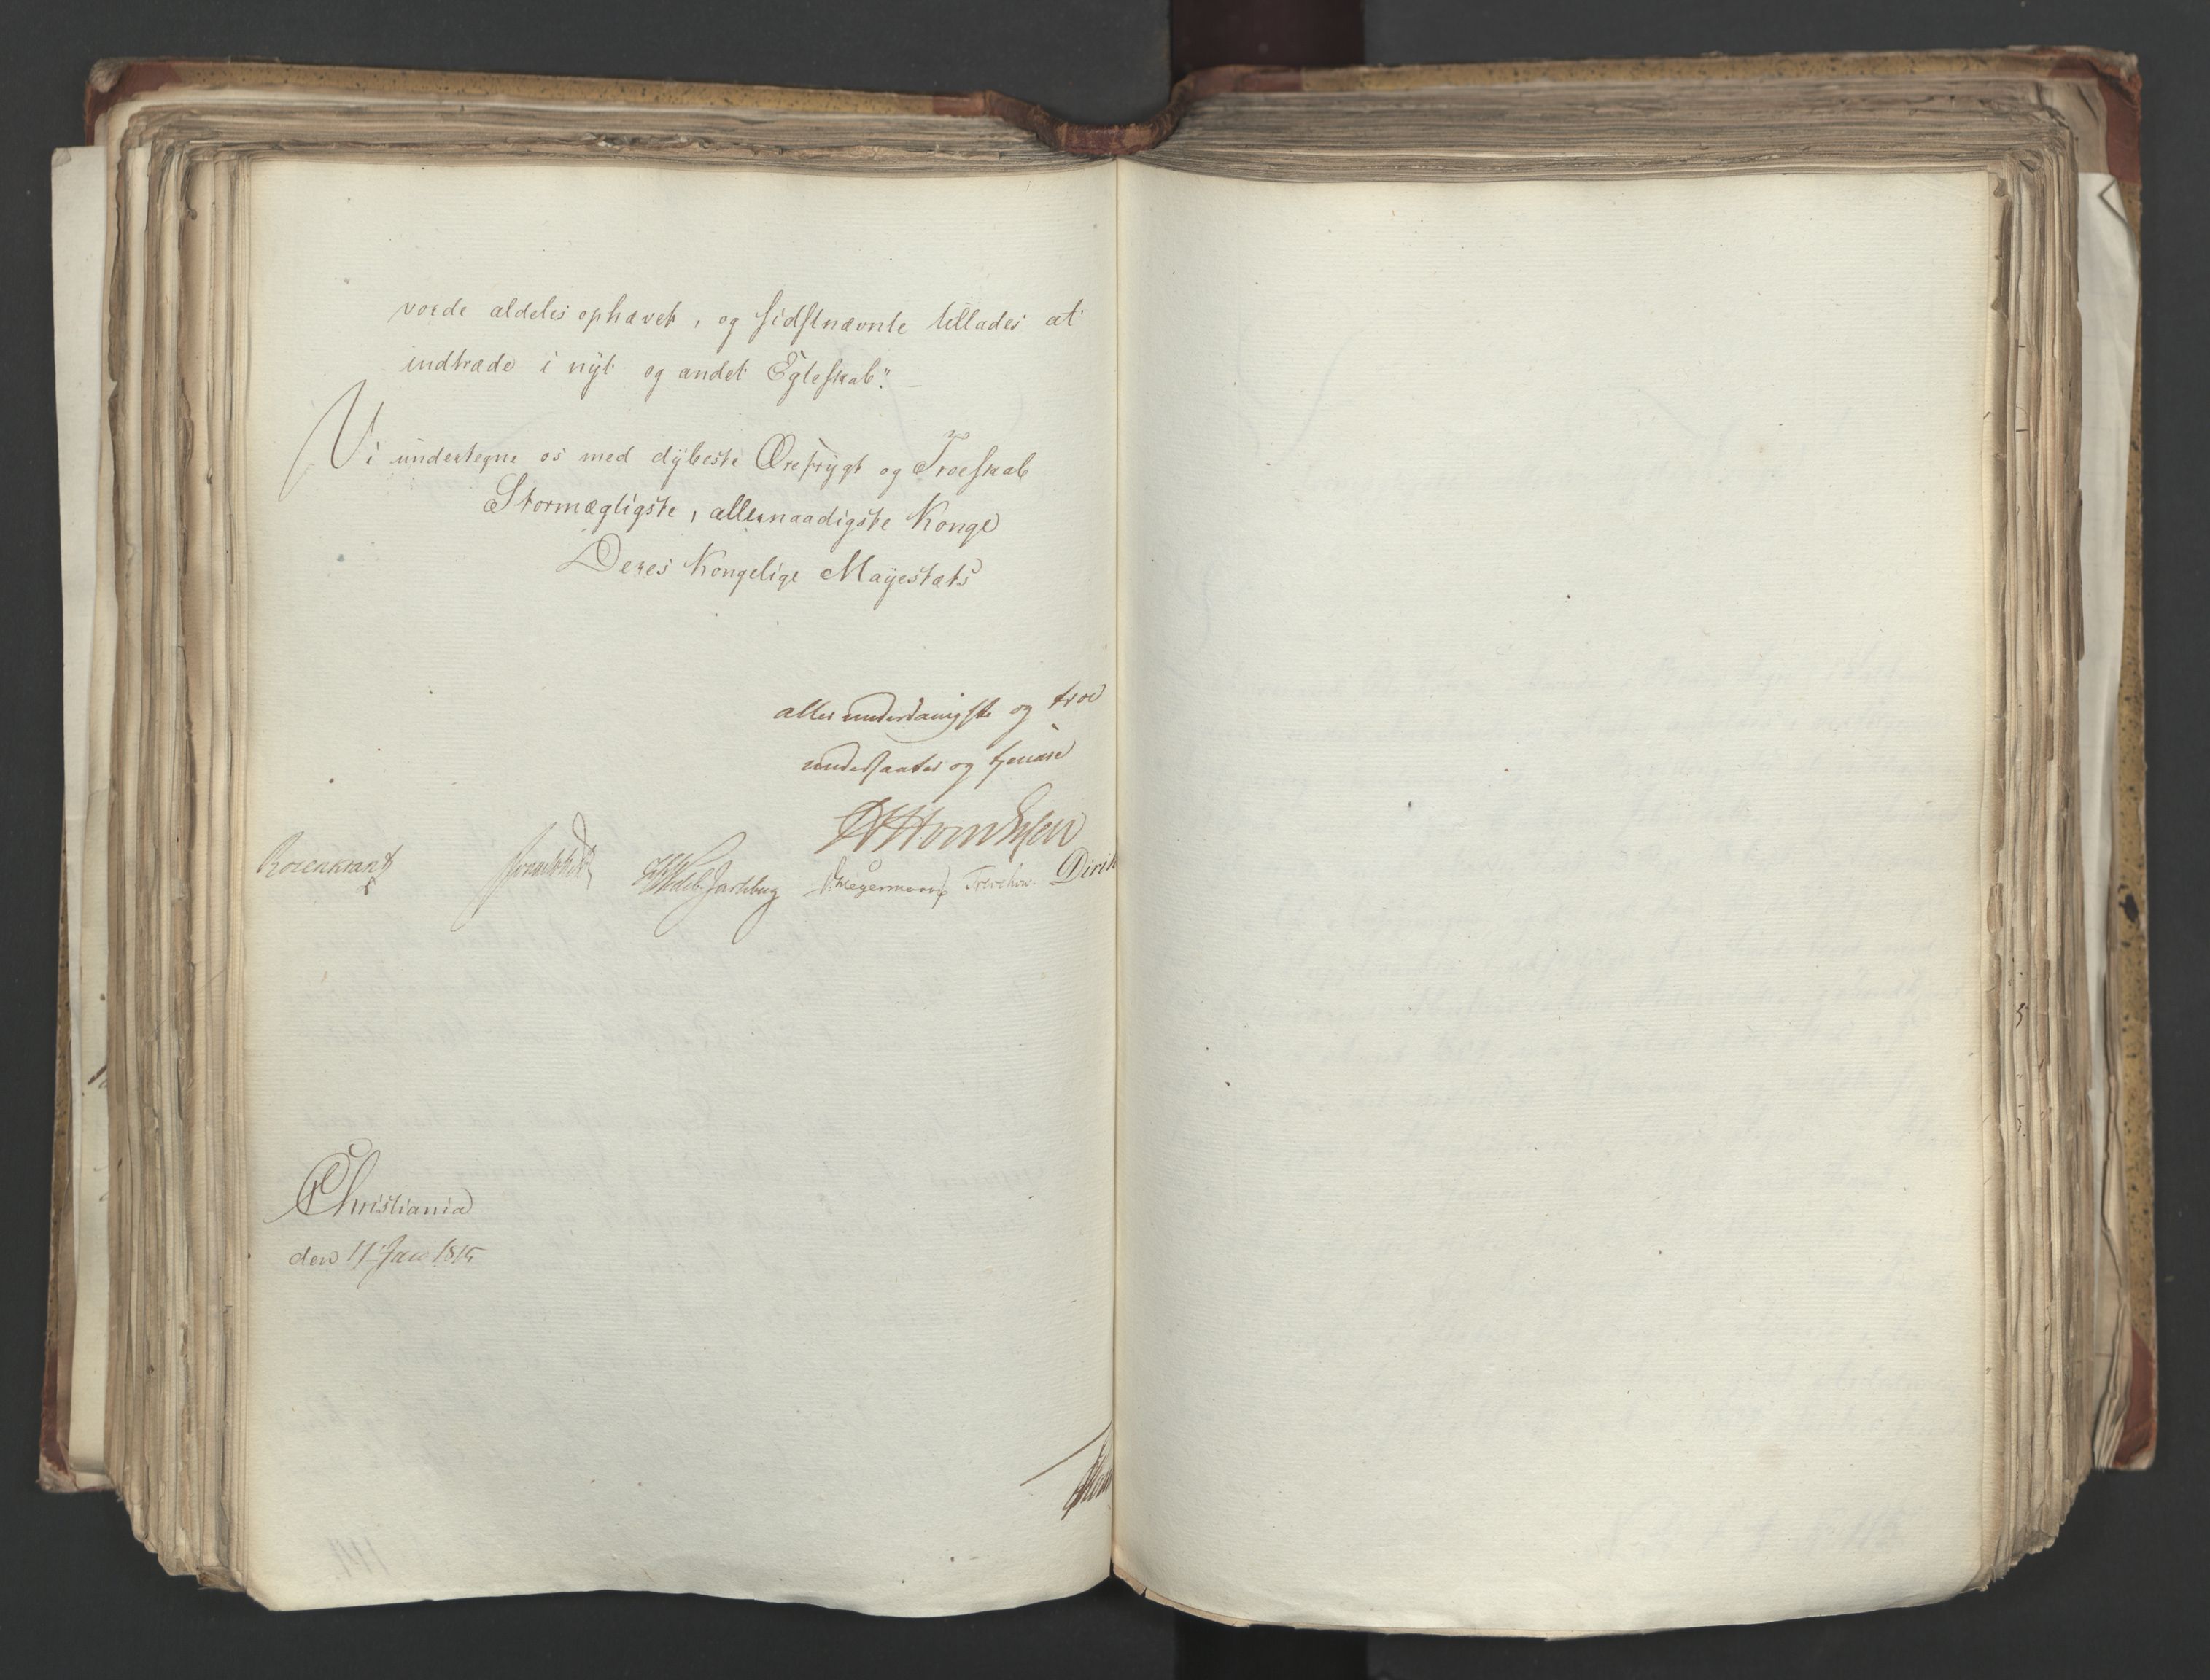 vorde aldeles ophævet, og sidstnævnte tillades at
indtræde i nÿt og andet Egteskab".
Vi undertegne os med dÿbeste Ærefrÿgt og Troeskab
Stormægtigste, allernaadigste Konge
Deres Kongelige Mayestæts
allerunderdanigste og troe
undersaatter og tjenere
Rosenkrantz
Wedel Jarlsberg
Hegermann
Treschow
Dirik
Christiania
den 17 Jan 1815